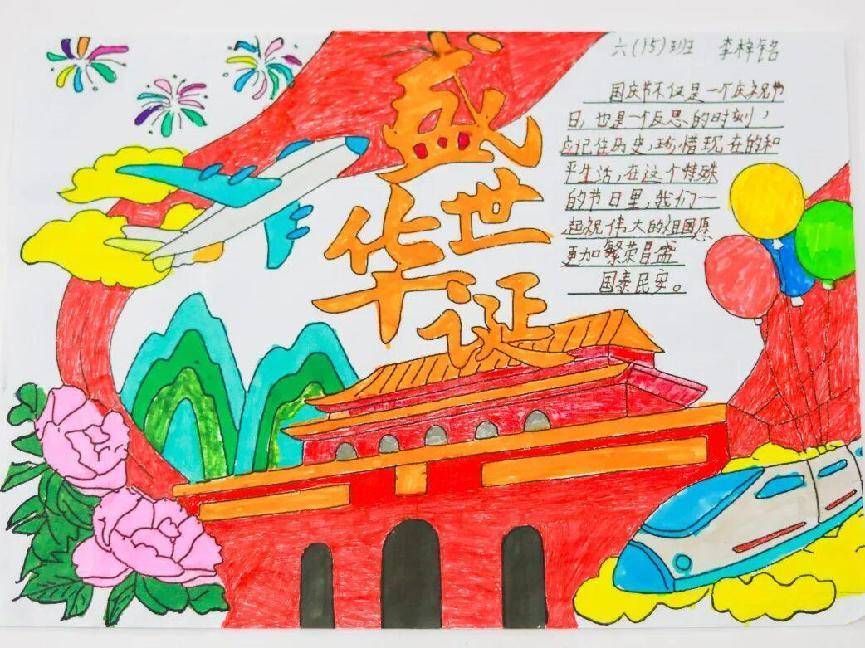 六(15)班 李梓铭
盛
世
华
诞
国庆节不仅是一个庆祝节
日,也是一个反思的时刻,
应记住历史,珍惜现在的和
平生活,在这个特殊
的节日里,我们一
起祝伟大的祖国愿
更加繁荣昌盛
国泰民安。